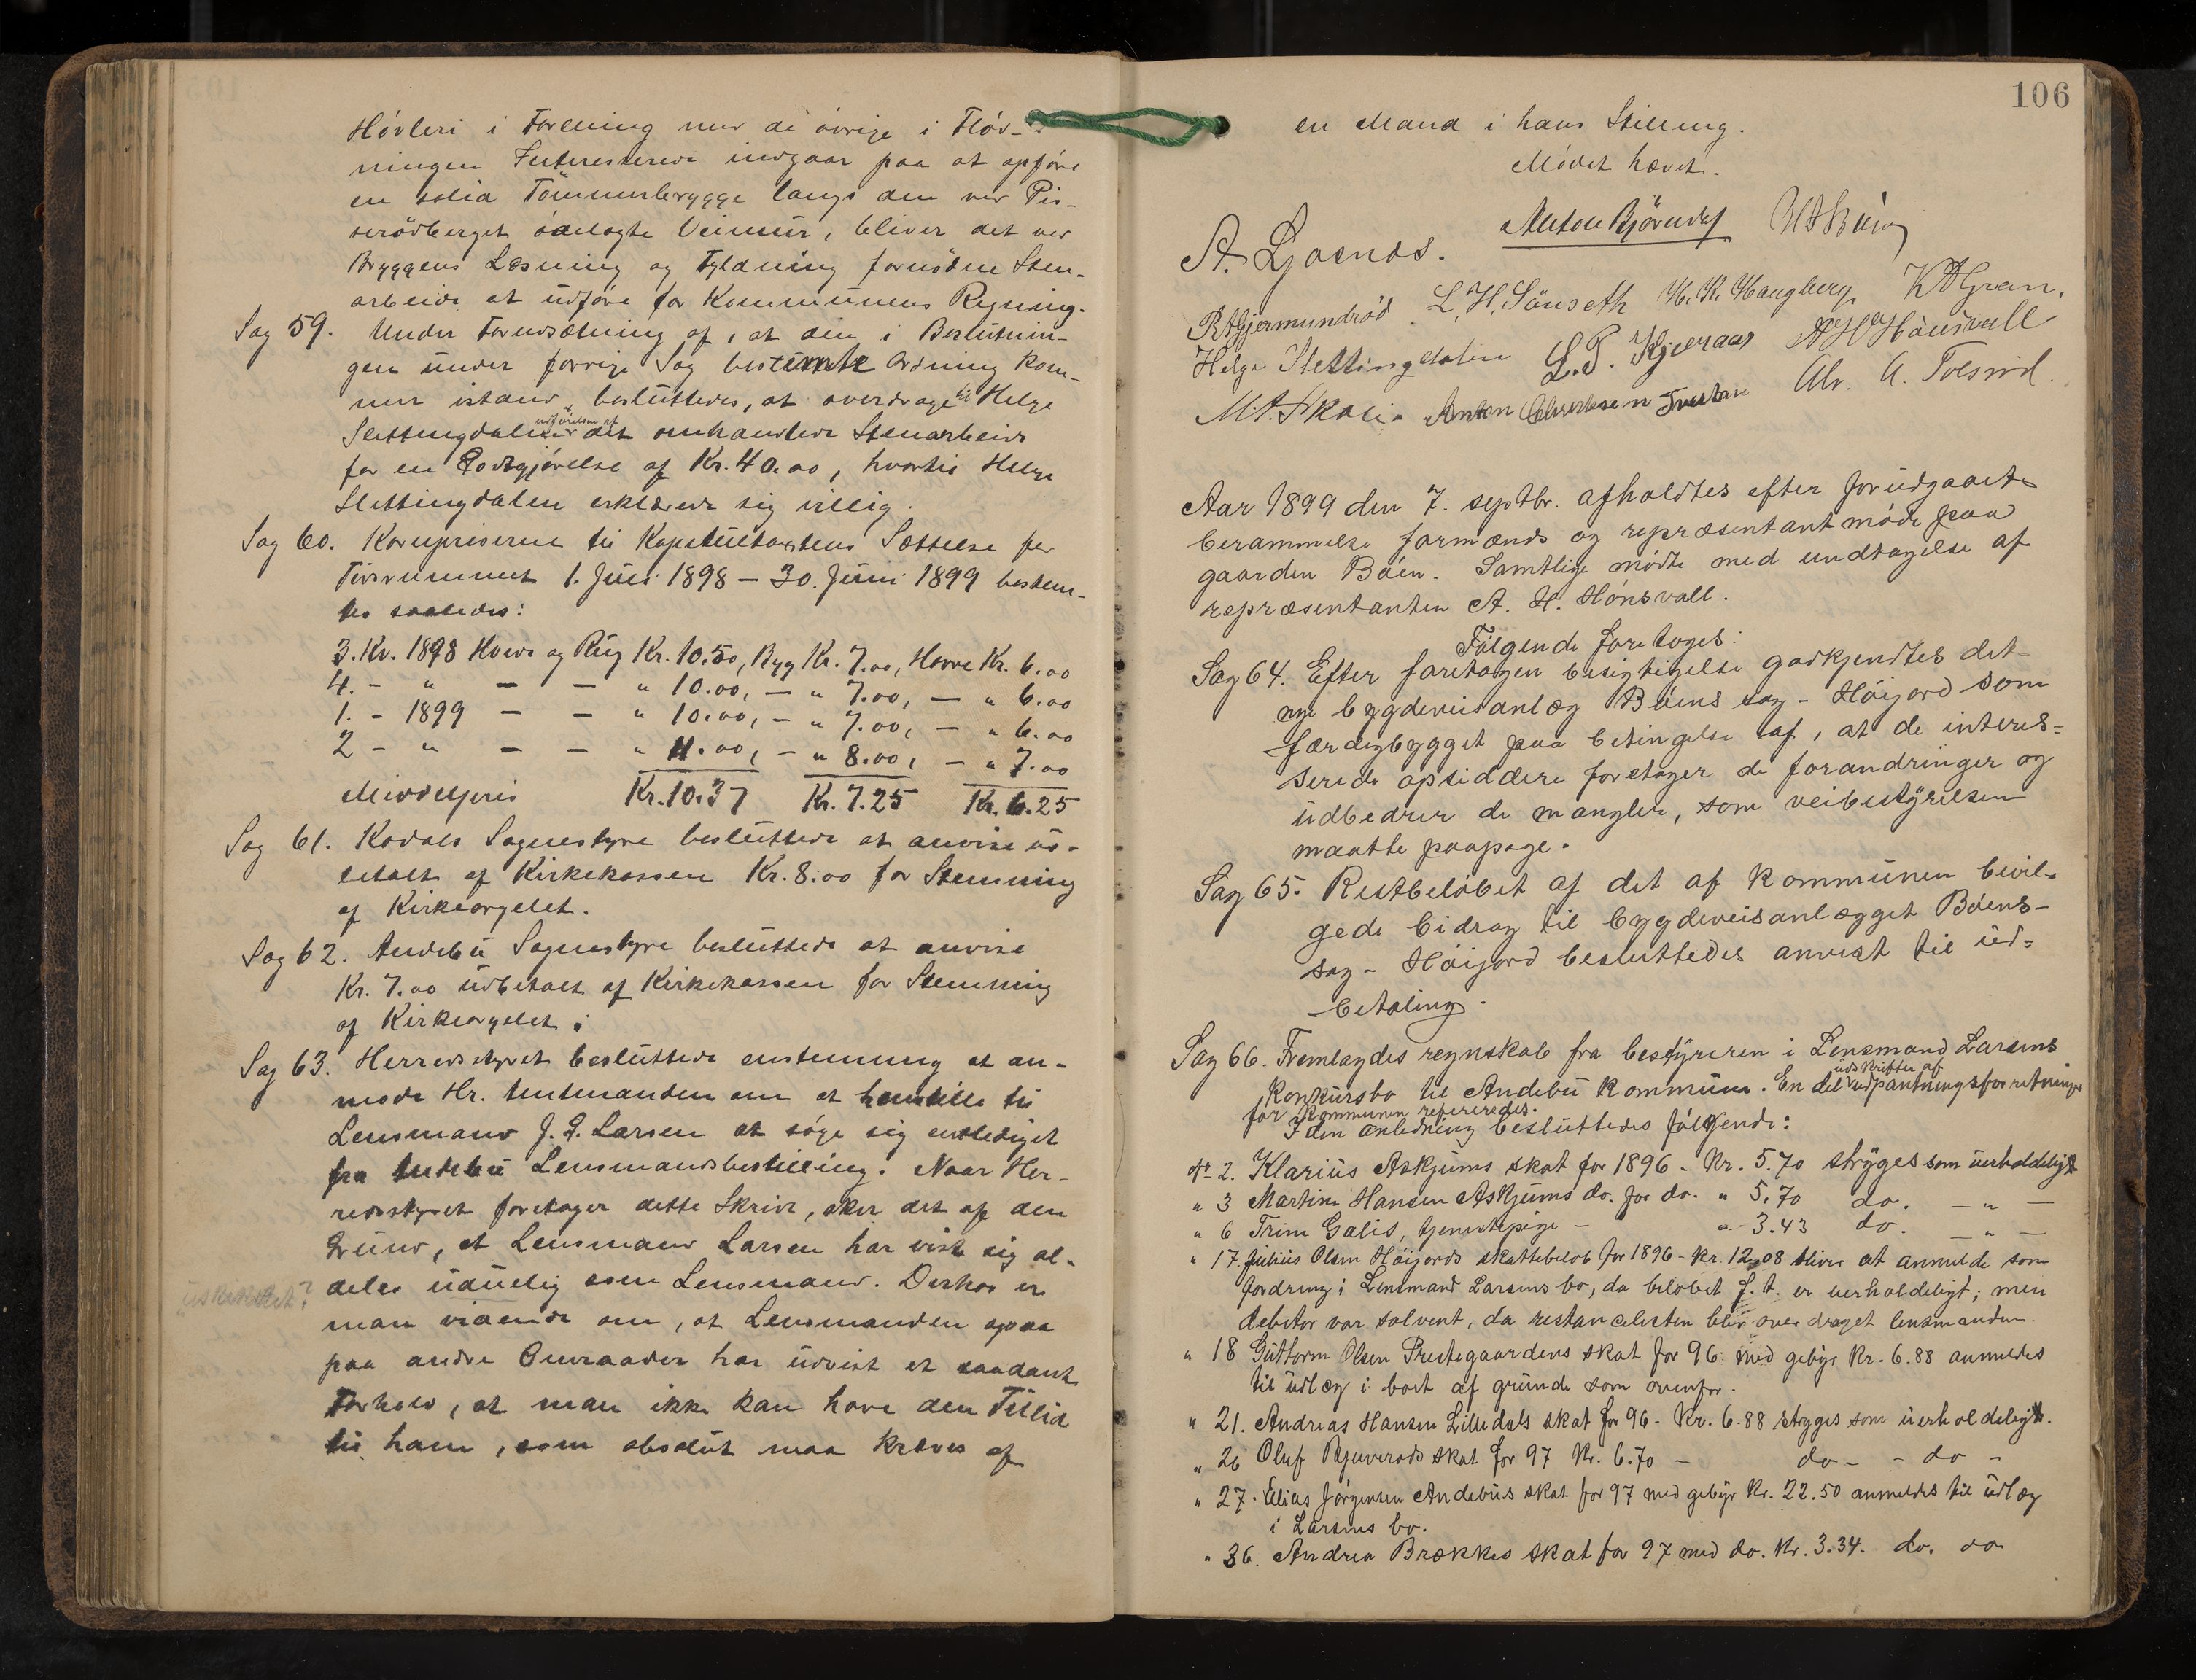 Høvleri i Forening med de øvrige i Flød-
ningen Interesserede indgaar paa at opføre
en solid Tømmerbrygge langs den ved Pis-
serødberget ødelagte Veimur, bliver det ved
Bryggens Læsning og Fyldning fornødne Sten-
arbeide at udføre for Kommunens Regning.
Sag 59. Under Forudsætning af, at den i Beslutnin-
gen under forrige Sag bestemte Ordning kom-
mer istand, besluttedes, at overdrage til Helge
Slettingdalen udførelsen af det omhandlede Stenarbeide
for en Godtgjørelse af Kr. 40.00, hvortil Helge
Slettingdalen erklærede sig villig.
Sag 60. Kornpriserne til Kapitultakstens Sættelse for
Tidsrummet 1. Juli 1898 – 30. Juni 1899 bestem-
tes saaledes:
3. Kv. 1898 Hvede og Rug Kr. 10.50, Byg Kr. 7.00, Havre Kr. 6.00
4. - " — — " 10.00, — " 7.00, — " 6.00
1. - 1899 — — " 10.00, — " 7.00, — " 6.00
2 - " — — " 11.00, — " 8.00, — " 7.00
Middelpris Kr. 10.37 Kr. 7.25 Kr. 6.25
Sag 61. Kodals Sognestyre besluttede at anvise ud-
betalt af Kirkekassen Kr. 8.00 for Stemning
af Kirkeorgelet.
Sag 62. Andebu Sognestyre besluttede at anvise
Kr. 7.00 udbetalt af Kirkekassen for Stemning
af Kirkeorgelet.
Sag 63. Herredsstyret besluttede enstemmig at an-
mode Hr. Amtmanden om at henstille til
Lensmand J. G. Larsen at søge sig entlediget
fra Andebu Lensmandsbestilling. Naar Her-
redsstyret foretager dette Skridt, sker det af den
Grund, at Lensmand Larsen har vist sig al-
deles uduelig som Lensmand. Derhos er
uskikket?
man vidende om, at Lensmanden ogsaa
paa andre Omraader har udvist et saadant
Forhold, at man ikke kan have den Tillid
til ham, som absolut maa kræves af
106
en Mand i hans Stilling.
Mødet hævet.
Anton Bjørndal
A. Gjosnæs.
R A Gjermundrød L. H. Sönseth H. K. Haugberg K A Gran.
Helge Slettingdalen L. P. Kjæraas A H Hönsvall
M. A. Skaei. Anton Christensen Trevlan Alv. A. Tolsrød.
Aar 1899 den 7. septbr. afholdtes efter forudgaaet
berammelse formands og repræsentantmøde paa
gaarden Bøen. Samtlige mødte med undtagelse af
repræsentanten A. H. Hönsvall.
Følgende foretoges:
Sag 64. Efter foretagen besigtigelse godkjendtes det
nye bygdeveisanlæg Bøens sag – Höijord som
færdigbygget paa betingelse af, at de interes=
serede opsiddere foretager de forandringer og
udbedrer de mangler, som veibestyrelsen
maatte paapege.
Sag 65. Restbeløbet af det af kommunen bevil-
gede bidrag til bygdeveisanlægget Bøens-
sag – Höijord besluttedes anvist til ud=
betaling.
Sag 66. Fremlagdes regnskab fra bestyreren i Lensmand Larsens
konkursbo til Andebu kommune. En del udskrifter af udpantningsforretninger
for kommunen refereredes.
I den anledning besluttedes følgende:
No 2. Klarius Askjums skat for 1896 - Kr. 5.70 stryges som uerholdeligt
" 3 Martin Hansen Askjums do. for do. " 5.70 do. — " —
" 6 Trine Galis, tjenestepige — " 3.43 do. — " —
" 17. Julius Olsen Höijords skattebeløb for 1896 - kr. 12.08 bliver at anmelde som
fordring i Lensmand Larsens bo, da beløbet f. t. er uerholdeligt; men
debitor var solvent, da restancelisten blev overdraget lensmanden.
" 18 Guttorm Olsen Prestegaardens skat for 96 med gebyr Kr. 6.88 anmeldes
til udlæg i boet af grunde som ovenfor.
" 21. Andreas Hansen Lilledals skat for 96 - Kr. 6.88 stryges som uerholdeligt.
" 26 Oluf skat for 97 Kr. 6.70 — do — - do -
" 27. Elias Jørgensen Andebus skat for 97 med gebyr Kr. 22.50 anmeldes til udlæg
i Larsens bo.
" 36. Andrea Brækkes skat for 97 med do. Kr. 3.34. do. do